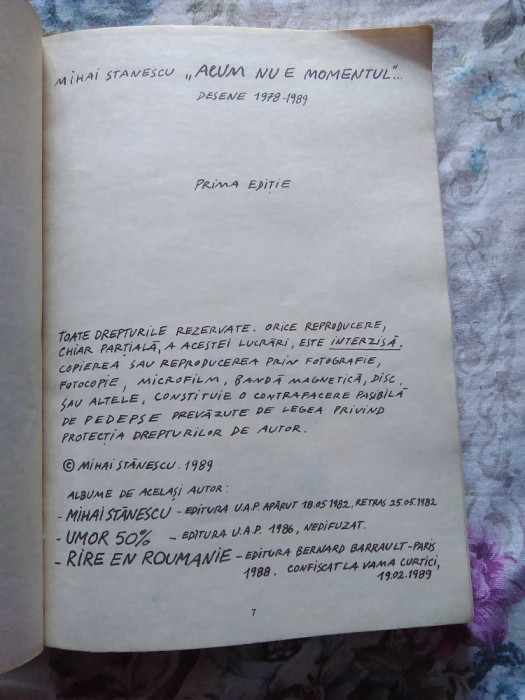 MIHAI STANESCU „ACUM NU E MOMENTUL"...
DESENE 1978-1989
PRIMA EDIȚIE
TOATE DREPTURILE REZERVATE. ORICE REPRODUCERE,
CHIAR PARȚIALĂ, A ACESTEI LUCRĂRI, ESTE INTERZISĂ.
COPIEREA SAU REPRODUCEREA PRIN FOTOGRAFIE,
FOTOCOPIE, MICROFILM, BANDĂ MAGNETICĂ, DISC,
SAU ALTELE, CONSTITUIE O CONTRAFACERE PASIBILĂ
DE PEDEPSE PREVĂZUTE DE LEGEA PRIVIND
PROTECȚIA DREPTURILOR DE AUTOR.
© MIHAI STĂNESCU. 1989
ALBUME DE ACELAȘI AUTOR:
- MIHAI STĂNESCU - EDITURA U.A.P. APĂRUT 18.05.1982, RETRAS 25.05.1982
- UMOR 50% - EDITURA U.A.P. 1986, NEDIFUZAT.
- RIRE EN ROUMANIE - EDITURA BERNARD BARRAULT-PARIS
1988. CONFISCAT LA VAMA CURTICI,
19.02.1989
7